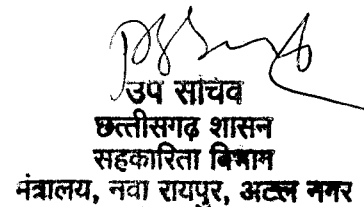 उप सचिव
छत्तीसगढ़ शासन
सहकारिता विभाग
मंत्रालय, नवा रायपुर, अटल नगर